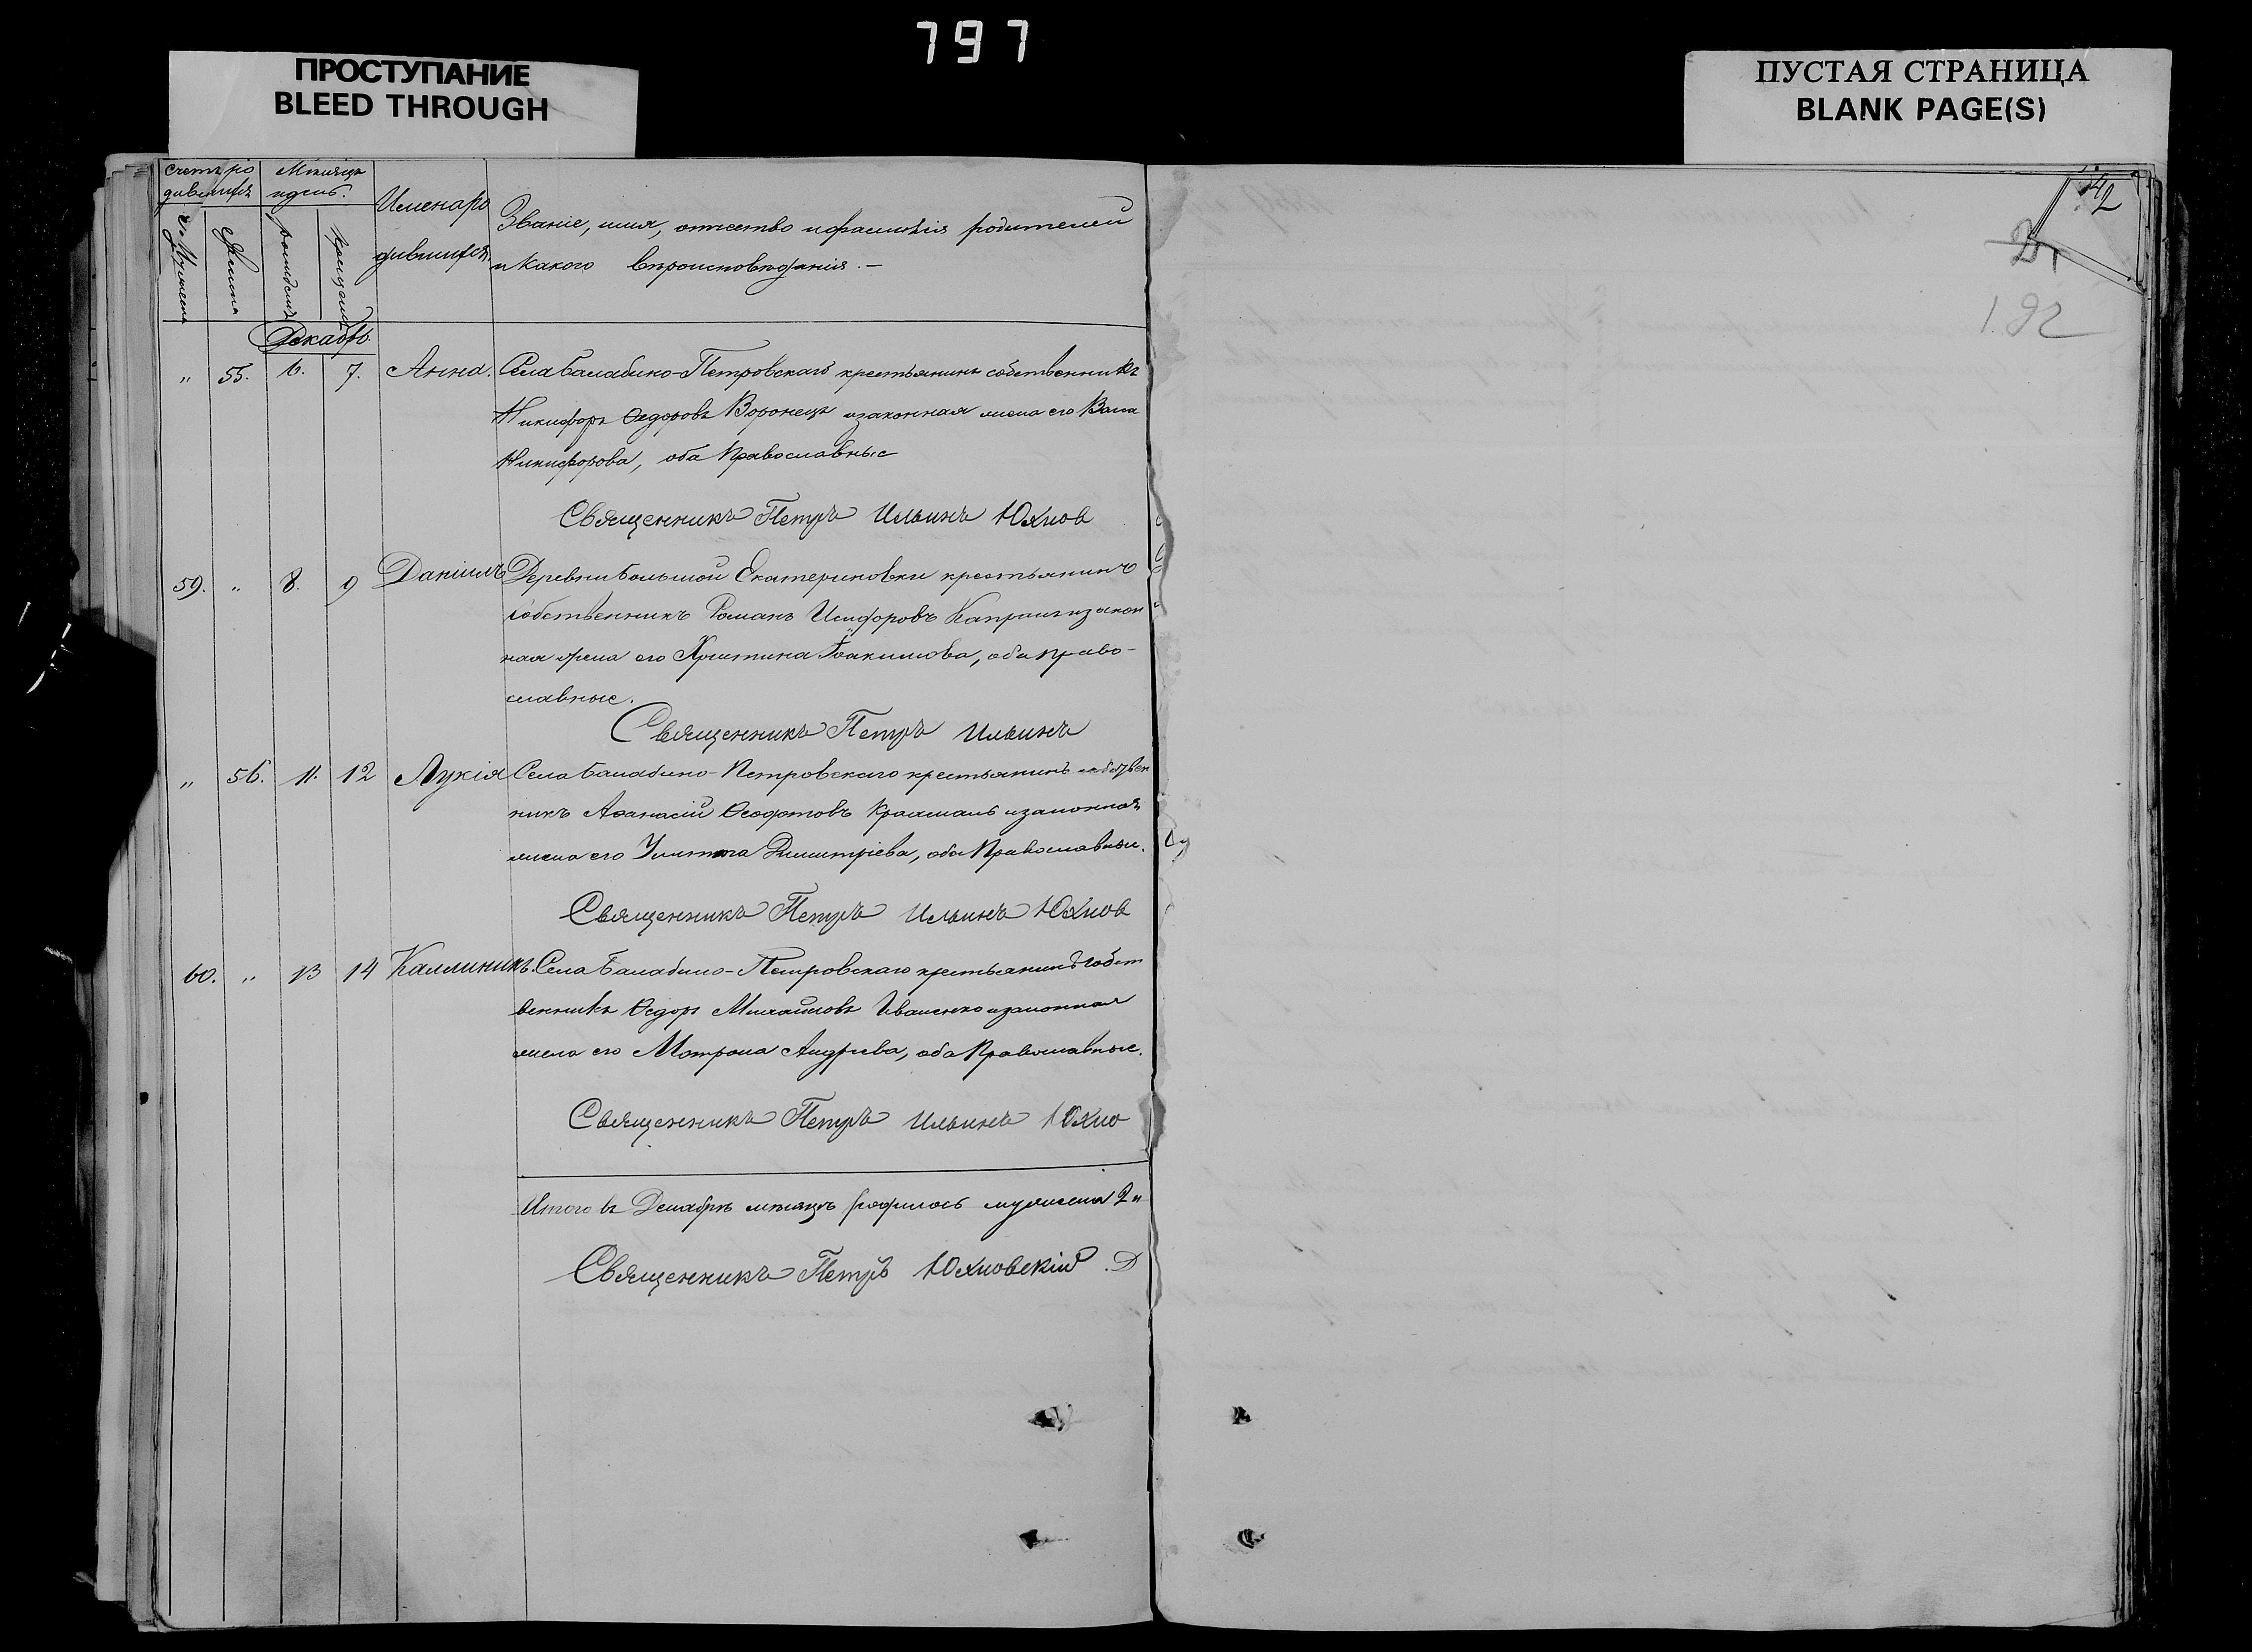 797
ПРОСТУПАНИЕ
BLEED THROUGH
ПУСТАЯ СТРАНИЦА
BLANK PAGE(S)
Счетъ ро
дившихся
Мѣсяцъ
и день.
Имена ро
дившихся.
Званіе, имя, отчество и фамилія родителей
и какого вѣроисповѣданія. —
Декабрь.
" 55. 6. 7. Анна. Села Балабино-Петровскаго крестьянинъ собственникъ
Никифоръ Ѳедоровъ Воронецъ и законная жена его
Никифорова, оба Православные
Священникъ Петръ Ильинъ Юхнов
59. " 8. 9 Даніилъ Деревни Большой Екатериновки крестьянинъ
собственникъ Романъ и закон
ная жена его Христина Іоакимова, оба право-
славные.
Священникъ Петръ Ильинъ
" 56. 11. 12 Лукія Села Балабино-Петровскаго крестьянинъ собствен
никъ Аѳанасій и законная
жена его Димитріева, оба Православные.
Священникъ Петръ Ильинъ Юхнов
60. " 13 14 Каллиникъ. Села Балабино-Петровскаго крестьянинъ собст
венникъ Ѳедоръ Михайловъ Иваненко и законная
жена его Матрона Андреева, оба Православные.
Священникъ Петръ Ильинъ Юхно
Итого въ Декабрѣ мѣсяцѣ родилось мужеска 2"
Священникъ Петръ Юхновскій. Д
142
192